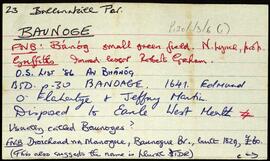 23 Ballinakill Par.
P120/3/6 (1)
BAUNOGE
FNB: Bánóg small green field. N. Lyne, prop.
Griffith: Immed. lessor Robert Graham.
O.S. LIST '86 AN BHÁNÓG
BSD. p. 30 BANOAGE. 1641. Edmund
O Flahertye & Jeffrey Martin
Disposed to Earle West Meath
Usually called Baunoges?
FNB Droichead na Manoogue, Baunoge Br., built 1829, £60.
(This also suggests the name is plural. STDR)